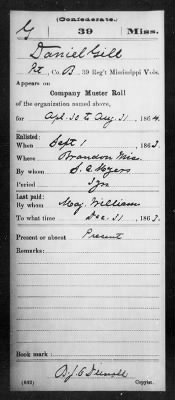 (Confederate.)
G 39 Miss.
Daniel Gill
Pt, Co. B, 39 Reg't Mississippi Vols.
Appears on
Company Muster Roll
of the organization named above,
for Apl. 30 to Aug. 31, 1864.
Enlisted:
When Sept 1, 1863.
Where Brandon Miss.
By whom S. A. Myers
Period 3 yrs
Last paid:
By whom Maj. William
To what time Dec. 31, 1863.
Present or absent Present
Remarks:
Book mark:
(642) Copyist.